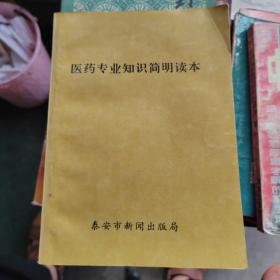 医药专业知识简明读本
泰安市新闻出版局